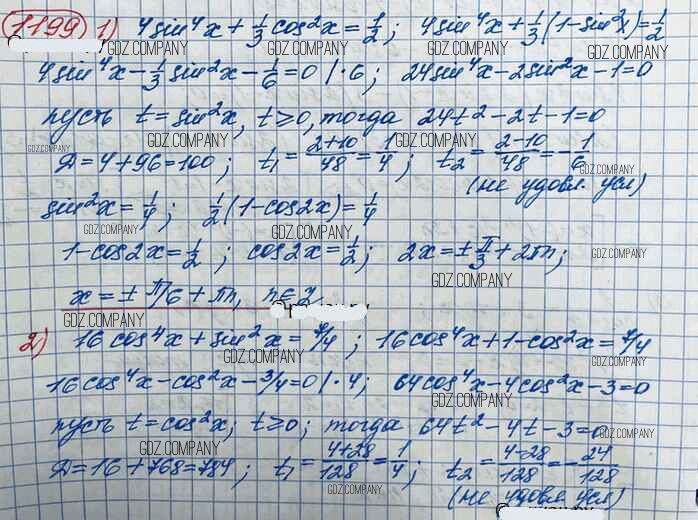 1199 1) 4sin⁴x + 1/3 cos²x = 1/2; 4sin⁴x + 1/3(1-sin²x) = 1/2
GDZ.COMPANY GDZ.COMPANY
4sin⁴x - 1/3 sin²x - 1/6 = 0 |·6; 24sin⁴x - 2sin²x - 1 = 0
GDZ.COMPANY GDZ.COMPANY
пусть t = sin²x, t ≥ 0, тогда 24t² - 2t - 1 = 0
GDZ.COMPANY GDZ.COMPANY GDZ.COMPANY
Д = 4 + 96 = 100; t₁ = 2+10/48 = 1/4; t₂ = 2-10/48 = -1/6
GDZ.COMPANY GDZ.COMPANY
(не удовл. усл)
sin²x = 1/4; 1/2(1-cos2x) = 1/4
GDZ.COMPANY GDZ.COMPANY
1-cos2x = 1/2; cos2x = 1/2; 2x = ±π/3 + 2πn;
GDZ.COMPANY GDZ.COMPANY GDZ.COMPANY
x = ±π/6 + πn, n∈Z
GDZ.COMPANY
2) 16cos⁴x + sin²x = 7/4; 16cos⁴x + 1 - cos²x = 7/4
GDZ.COMPANY GDZ.COMPANY
16cos⁴x - cos²x - 3/4 = 0 |·4; 64cos⁴x - 4cos²x - 3 = 0
GDZ.COMPANY GDZ.COMPANY
пусть t = cos²x; t ≥ 0; тогда 64t² - 4t - 3 = 0
GDZ.COMPANY GDZ.COMPANY
Д = 16 + 768 = 784; t₁ = 4+28/128 = 1/4; t₂ = 4-28/128 = -24/128
GDZ.COMPANY
(не удовл усл)